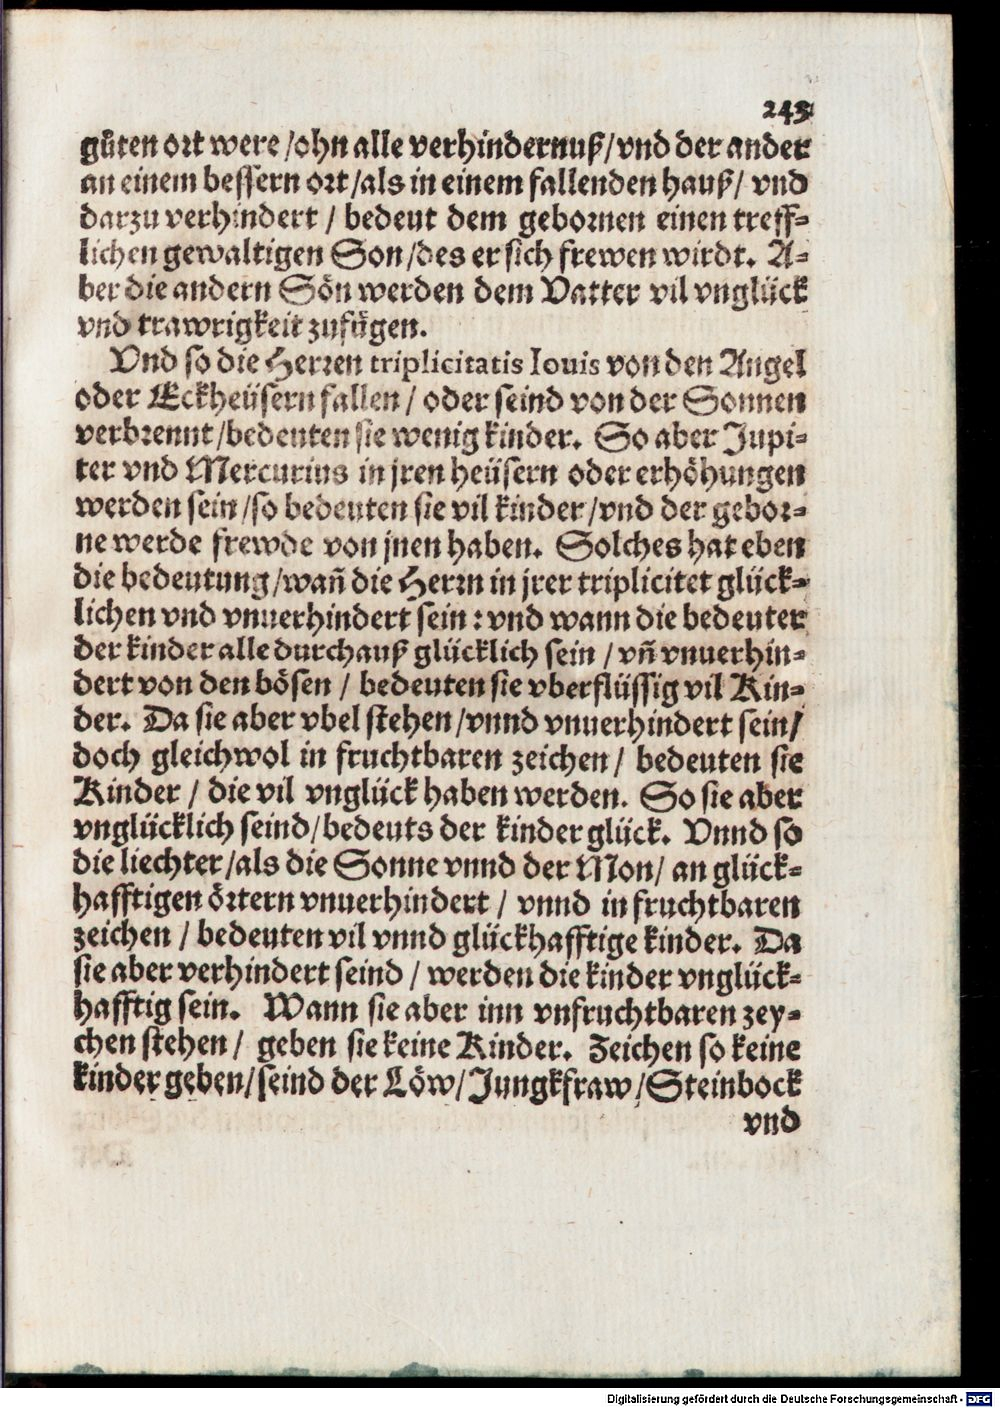 243
gůten ort were /ohn alle verhindernuß/vnd der ander
an einem bessern ort/als in einem fallenden hauß/ vnd
darzu verhindert / bedeut dem gebornen einen treff-
lichen gewaltigen Son/des er sich frewen wirdt. A-
ber die andern Sön werden dem Vatter vil vnglück
vnd trawrigkeit zufügen.
Vnd so die Herren triplicitatis Iouis von den Angel
oder Eckheüsern fallen / oder seind von der Sonnen
verbrennt/bedeuten sie wenig kinder. So aber Jupi-
ter vnd Mercurius in jren heüsern oder erhöhungen
werden sein/so bedeuten sie vil kinder/vnd der gebor-
ne werde frewde von jnen haben. Solches hat eben
die bedeutung/wañ die Herrn in jrer triplicitet glück-
lichen vnd vnuerhindert sein: vnd wann die bedeuter
der kinder alle durchauß glücklich sein / vñ vnuerhin-
dert von den bösen / bedeuten sie vberflüssig vil Kin-
der. Da sie aber vbel stehen/vnnd vnuerhindert sein/
doch gleichwol in fruchtbaren zeichen / bedeuten sie
Kinder / die vil vnglück haben werden. So sie aber
vnglücklich seind/bedeuts der kinder glück. Vnnd so
die liechter/als die Sonne vnnd der Mon/ an glück-
hafftigen örtern vnuerhindert / vnnd in fruchtbaren
zeichen / bedeuten vil vnnd glückhafftige kinder. Da
sie aber verhindert seind / werden die kinder vnglück-
hafftig sein. Wann sie aber inn vnfruchtbaren zey-
chen stehen / geben sie keine Kinder. Zeichen so keine
kinder geben/seind der Löw/Jungkfraw/Steinbock
vnd
Digitalisierung gefördert durch die Deutsche Forschungsgemeinschaft - DFG